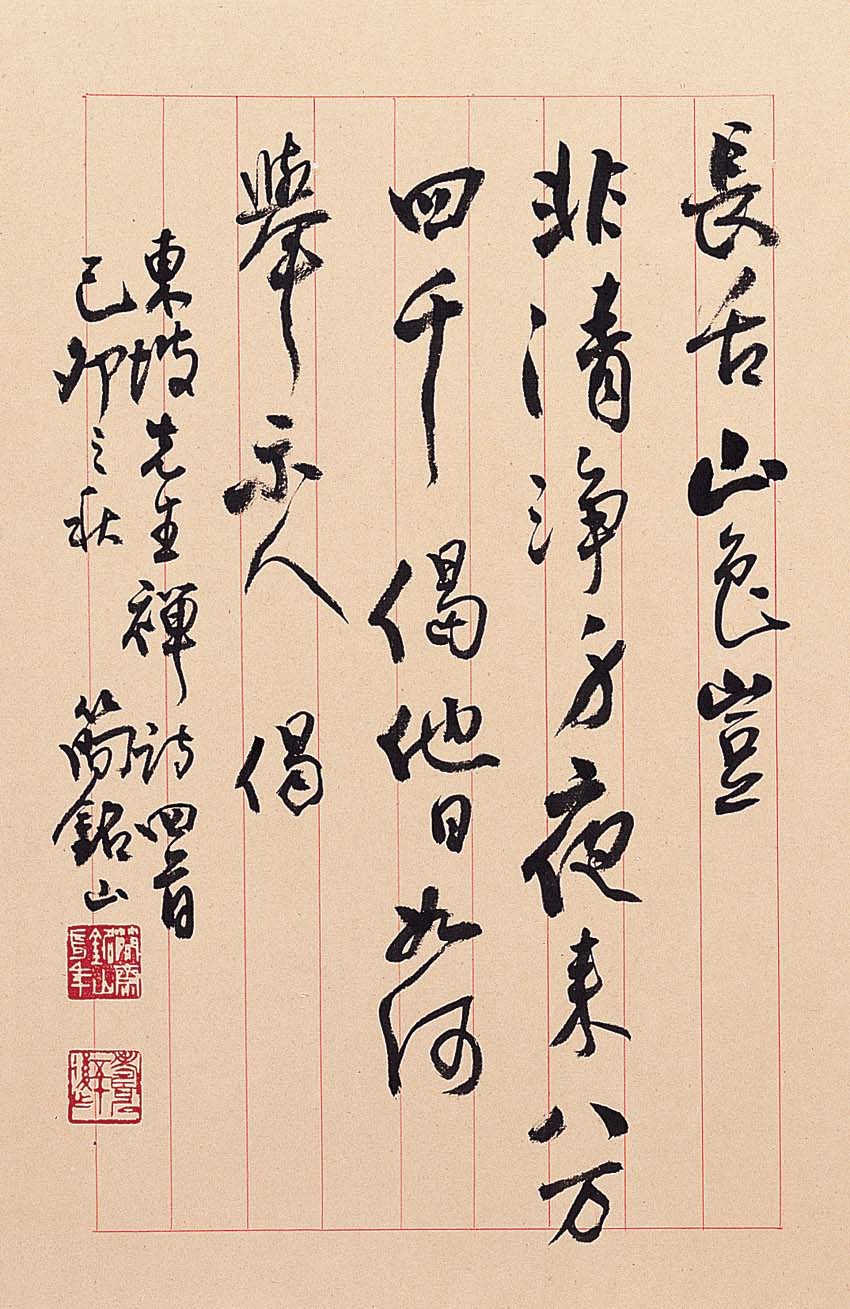 長舌山色豈
非清淨身夜来八万
四千偈他日如何
舉示人 偈
東坡先生禪詩四首
己卯之秋 簡銘山